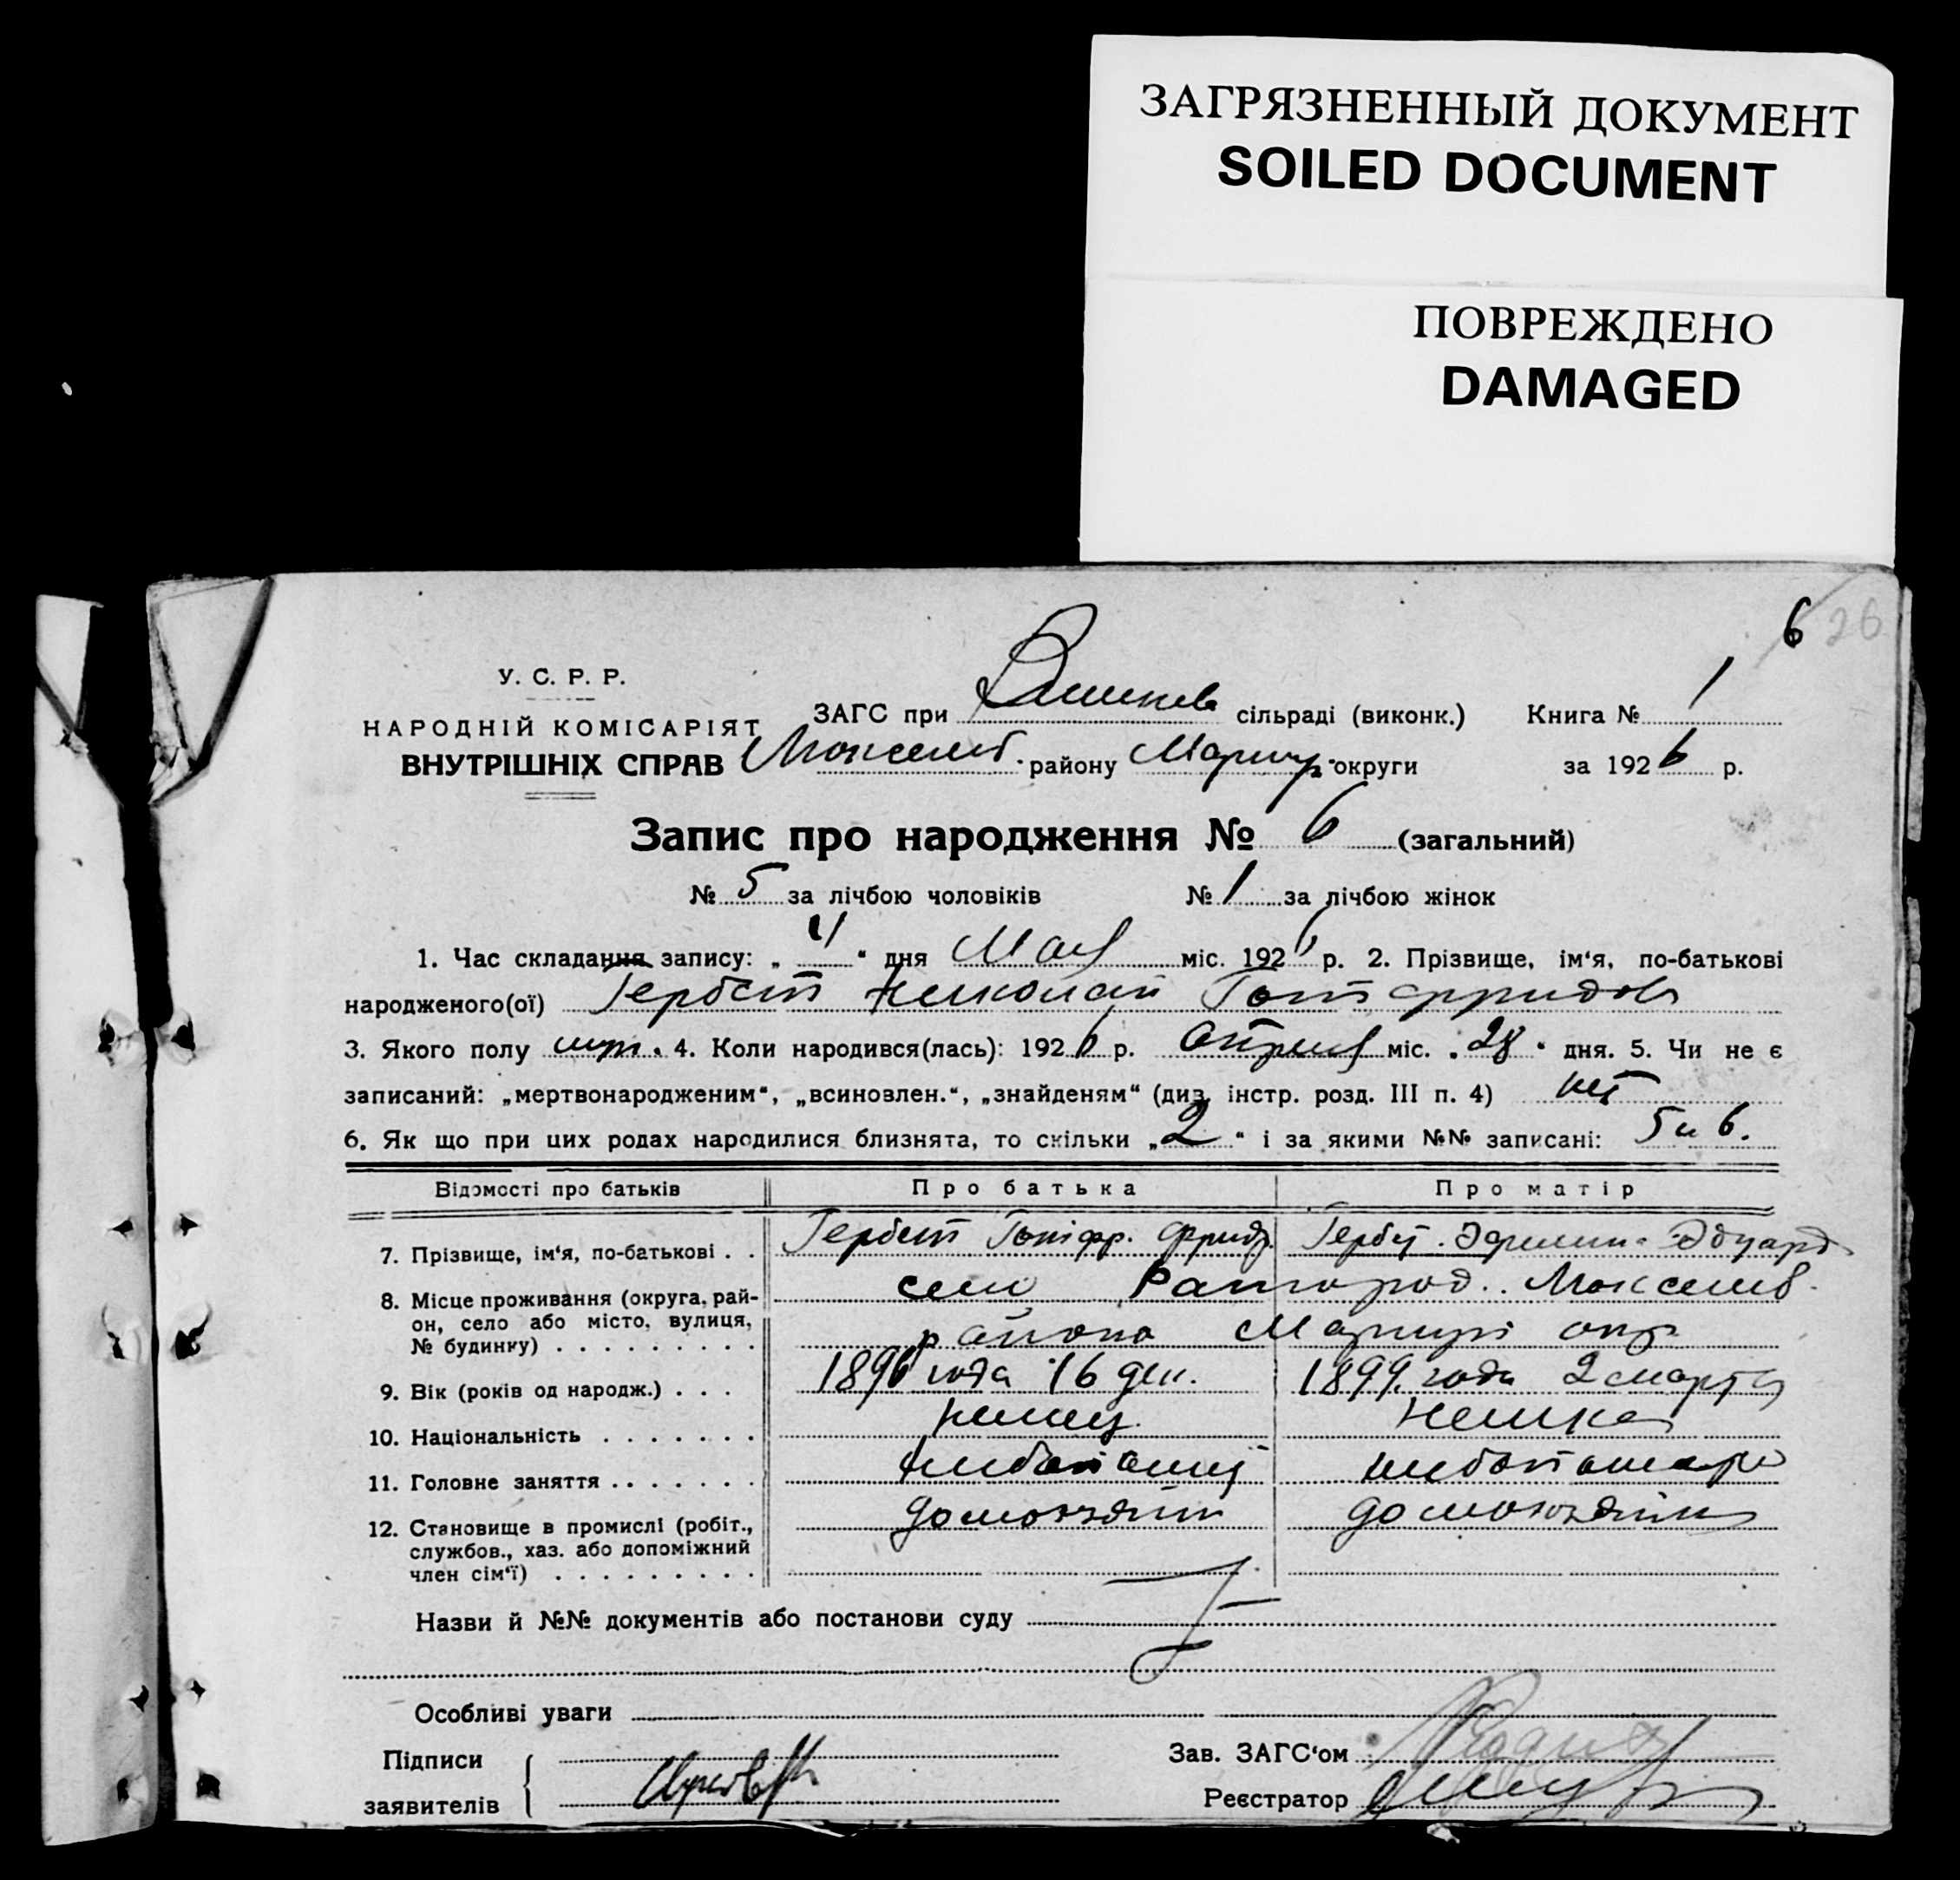 ЗАГРЯЗНЕННЫЙ ДОКУМЕНТ
SOILED DOCUMENT
ПОВРЕЖДЕНО
DAMAGED
6 26
У. С. Р. Р.
НАРОДНІЙ КОМІСАРІЯТ
ВНУТРІШНІХ СПРАВ
ЗАГС при сільраді (виконк.) Книга № 1
району Мариуп. округи за 1926 р.
Запис про народження № 6 (загальний)
№ 5 за лічбою чоловіків № 1 за лічбою жінок
1. Час складання запису: „ 4 “ дня Мая міс. 1926 р. 2. Прізвище, ім‘я, по-батькові
народженого(ої) Гербст Николай Готфридов
3. Якого полу муж. 4. Коли народився(лась): 1926 р. Апреля міс. „28“ дня. 5. Чи не є
записаний: „мертвонародженим“, „всиновлен.“, „знайденям“ (див. інстр. розд. III п. 4) нет
6. Як що при цих родах народилися близнята, то скільки „2“ і за якими №№ записані: 5 и 6.
Відомості про батьків Про батька Про матір
7. Прізвище, ім‘я, по-батькові . . Гербст Готфр. Фридр. Гербст Эдуард
8. Місце проживання (округа, рай-
он, село або місто, вулиця,
№ будинку) . . . . . . . . . село
района Мариуп окр
9. Вік (років од народж.) . . . 1896 года 16 дек. 1899 года 2 марта
10. Національність . . . . . . . немец немка
11. Головне заняття . . . . . . . хлебопашец хлебопашество
12. Становище в промислі (робіт.,
службов., хаз. або допоміжний
член сім‘ї) . . . . . . . . . домохозяин домохозяйка
Назви й №№ документів або постанови суду
Особливі уваги
Підписи
заявителів
Зав. ЗАГС‘ом
Реєстратор